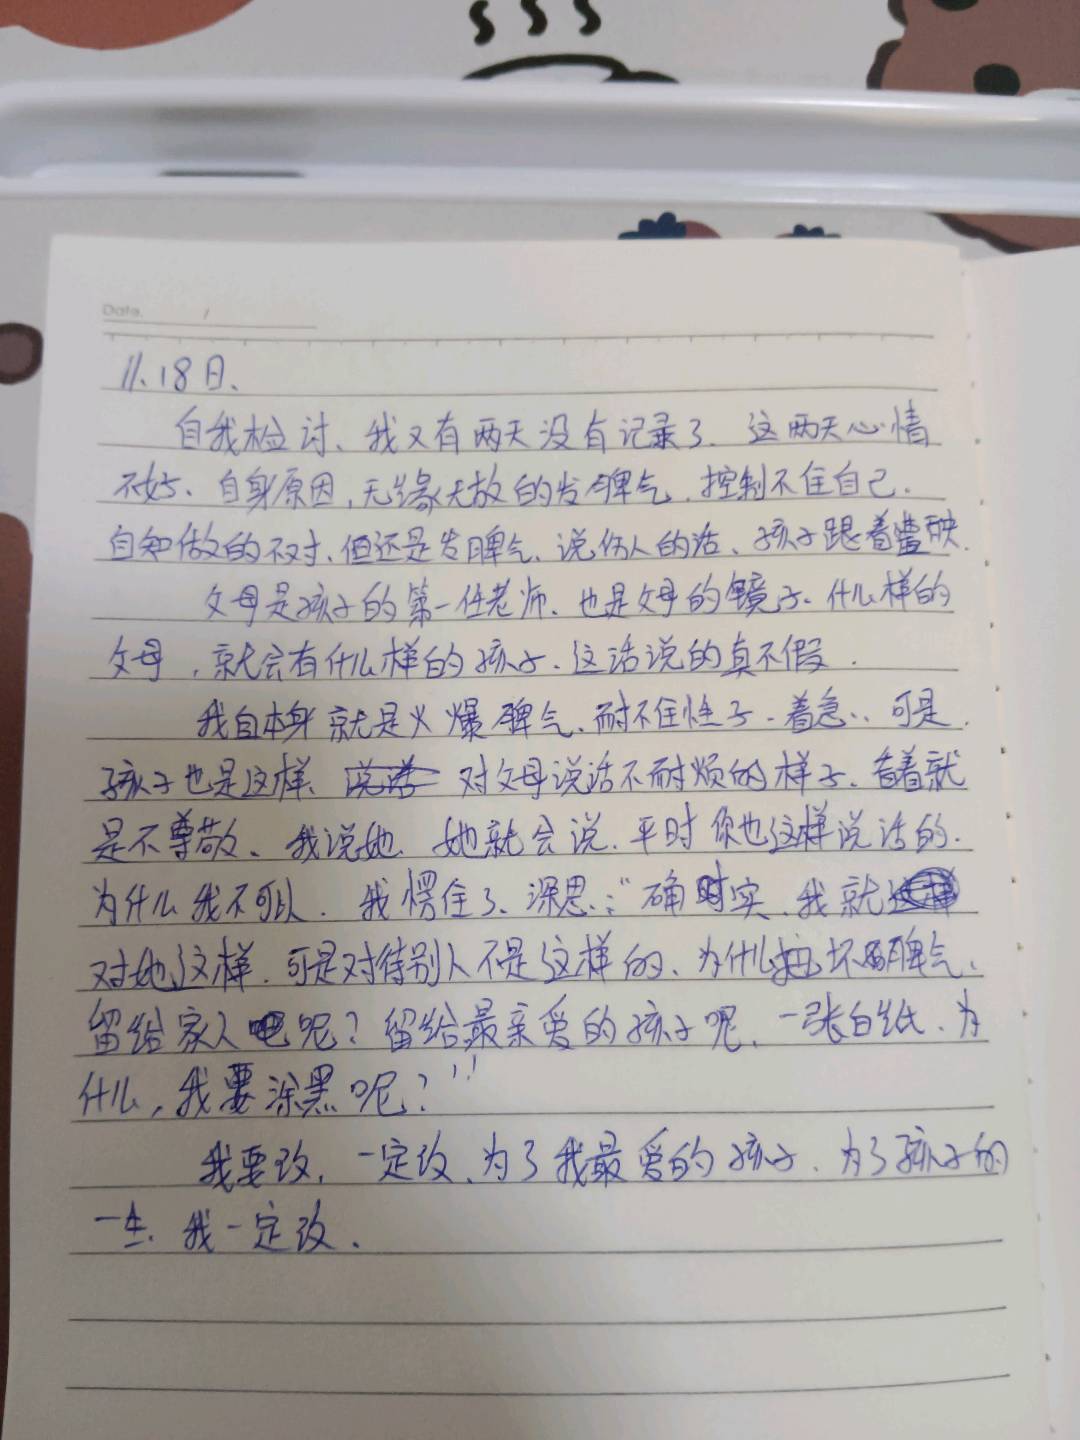 Date. /
11.18日.
自我检讨、我又有两天没有记录了. 这两天心情
不好、自身原因,无缘无故的发脾气.控制不住自己.
自知做的不对、但还是发脾气、说伤人的话、孩子跟着遭殃.
父母是孩子的第一任老师、也是父母的镜子、什么样的
父母,就会有什么样的孩子、这话说的真不假.
我自本身就是火爆脾气、耐不住性子.着急.. 可是.
孩子也是这样、对父母说话不耐烦的样子、看着就
是不尊敬、我说她 她就会说.平时你也这样说话的.
为什么我不可以. 我愣住了、深思:"确实、我就
对她这样.可是对待别人不是这样的、为什么把坏脾气、
留给家人呢?留给最亲爱的孩子呢、一张白纸、为
什么,我要涂黑呢?"
我要改,一定改、为了我最爱的孩子、为了孩子的
一生.我一定改.